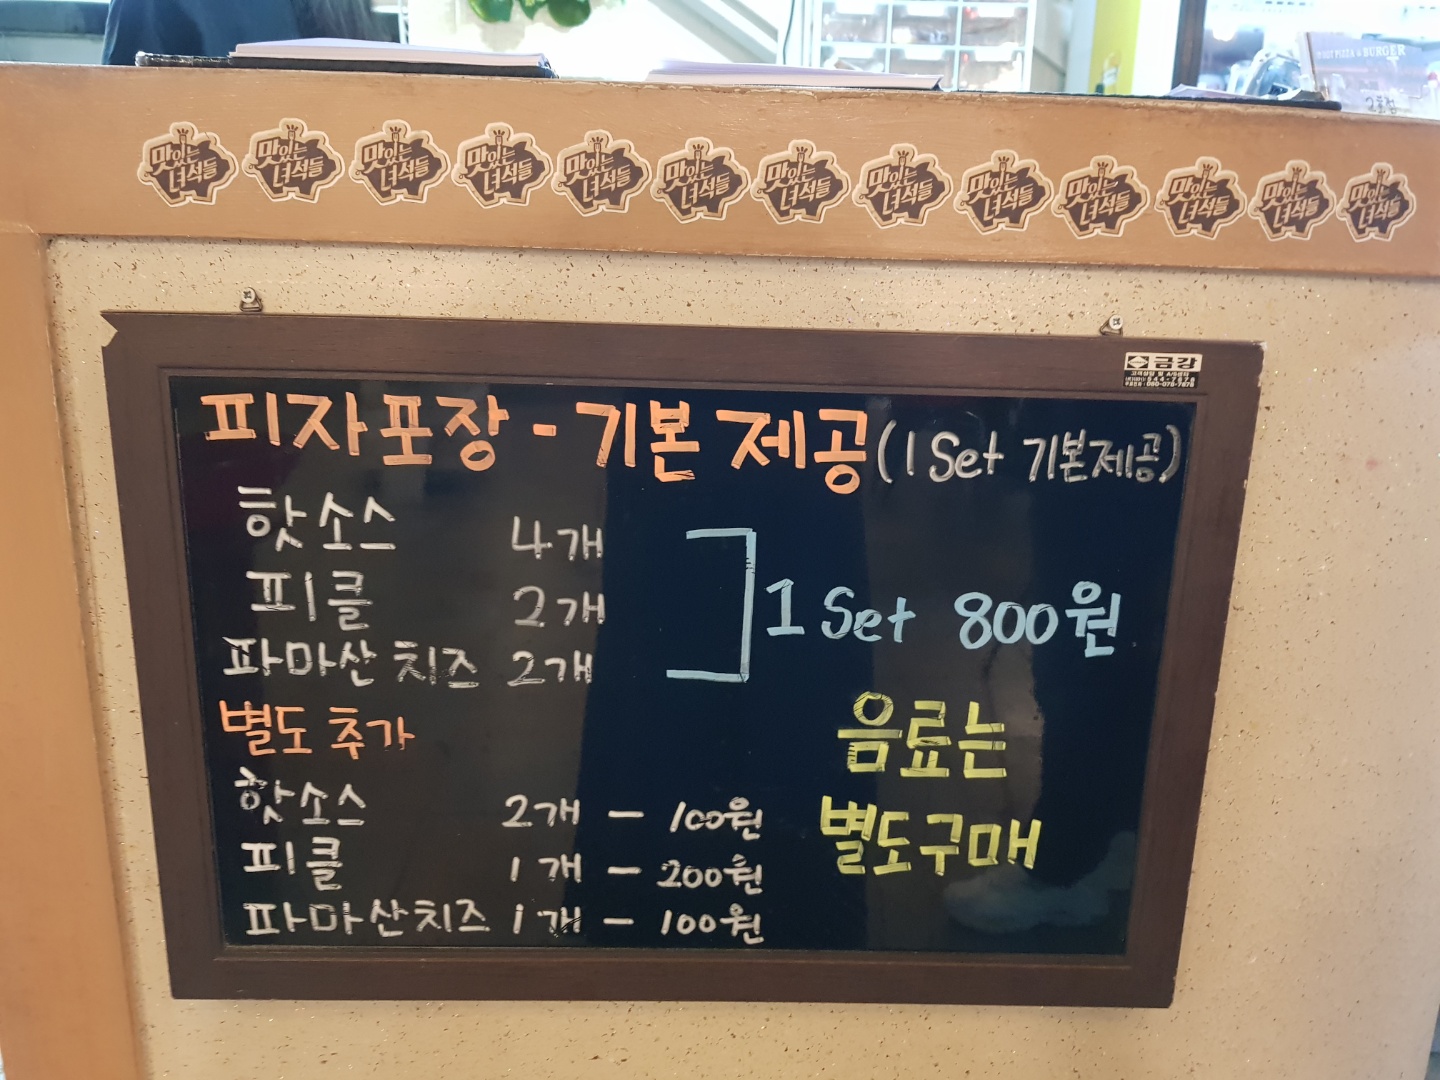 PIZZA & BURGER
맛있는 녀석들
맛있는 녀석들
맛있는 녀석들
맛있는 녀석들
맛있는 녀석들
맛있는 녀석들
맛있는 녀석들
맛있는 녀석들
맛있는 녀석들
맛있는 녀석들
맛있는 녀석들
맛있는 녀석들
맛있는 녀석들
금강
고객상담 및 A/S센타
피자포장 - 기본 제공 (1 Set 기본제공)
핫소스 4개
피클 2개
파마산 치즈 2개
1 Set 800원
별도 추가
핫소스 2개 - 100원
피클 1개 - 200원
파마산치즈 1개 - 100원
음료는
별도구매